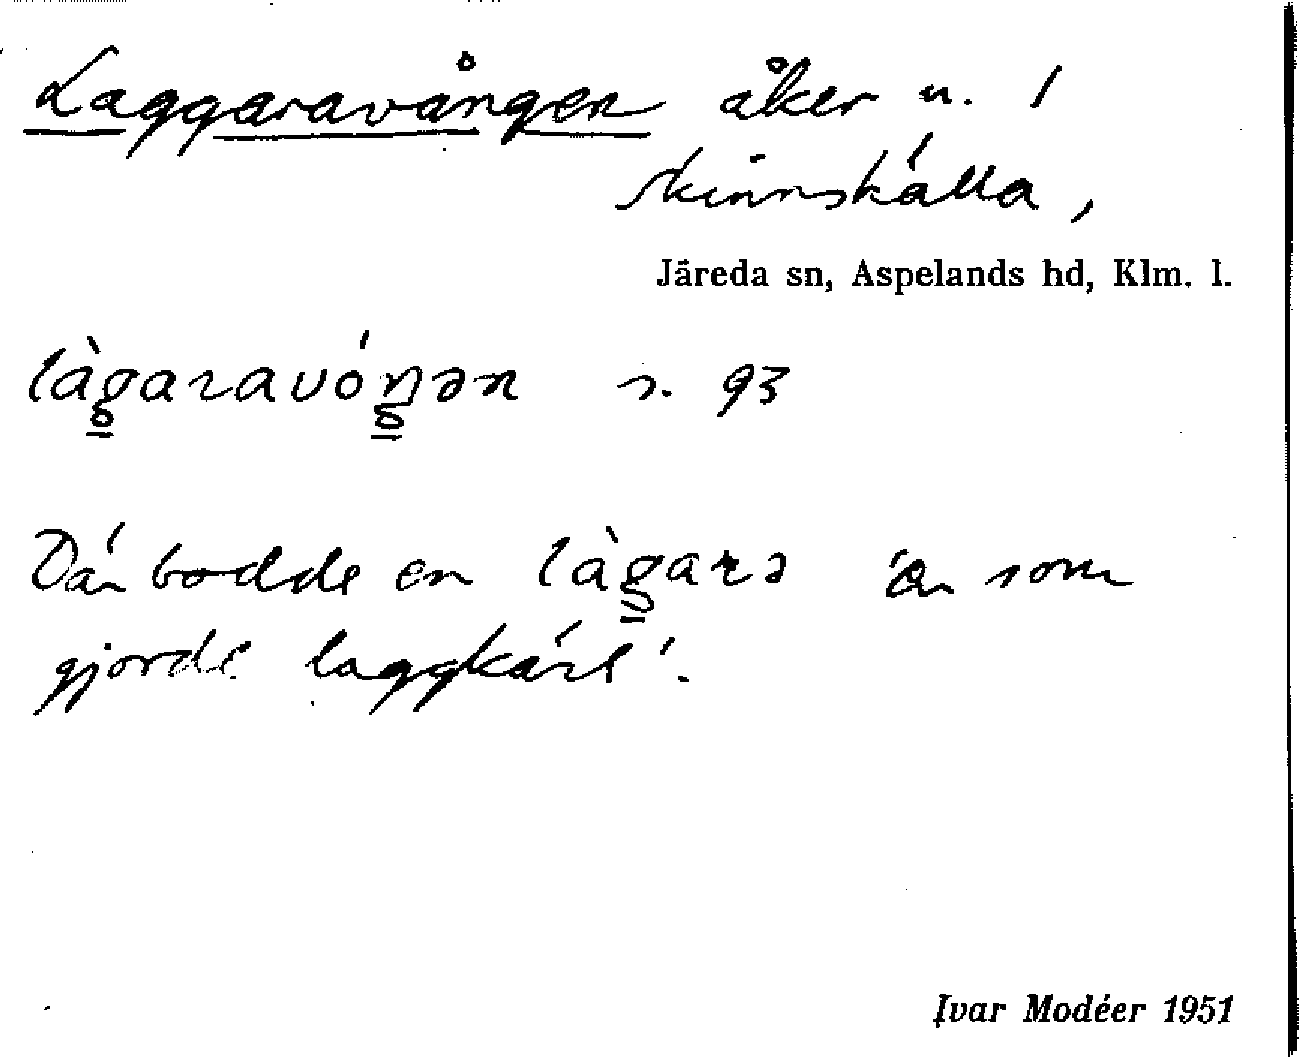 Laggaravången åker u. /
Skinnskälla,
Järeda sn, Aspelands hd, Klm. l.
làg̲aravóŋ̲ən s. 93
Där bodde en làg̲arə 'en som
gjorde laggkärl'.
Ivar Modéer 1951